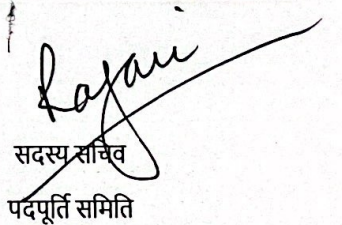 Rajani
सदस्य सचिव
पदपूर्ति समिति